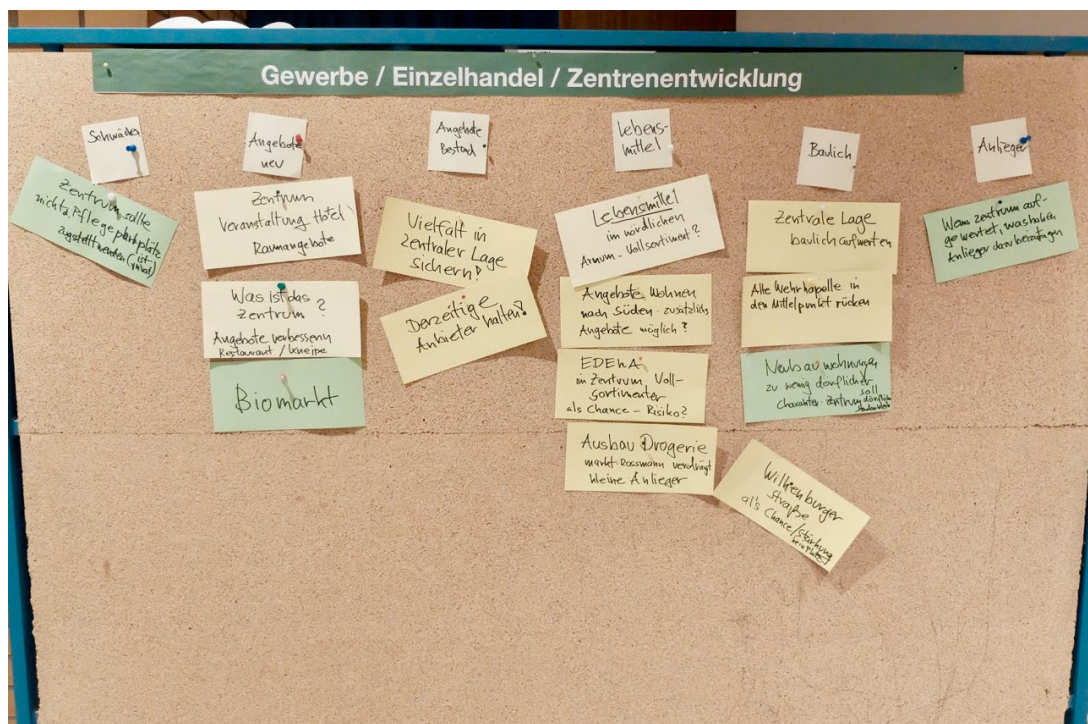 Gewerbe / Einzelhandel / Zentrenentwicklung
Schwächen
Zentrum sollte
nicht a. Pflegeparkplätze
zugestellt werden (ist
Angebote
neu
Zentrum
Veranstaltung Hotel
Raumangebote
Was ist das
Zentrum?
Angebote verbessern
Restaurant / Kneipe
Biomarkt
Angebote
Bestand
Vielfalt in
zentraler Lage
sichern!
Derzeitige
Anbieter halten!
Lebens-
mittel
Lebensmittel
im nördlichen
Arnum - Vollsortiment?
Angebote Wohnen
nach Süden - zusätzlich
Angebote möglich?
EDEKA
in Zentrum Voll-
sortimenter
als Chance - Risiko?
Ausbau Drogerie
markt Rossmann verdrängt
kleine Anlieger
Baulich
Zentrale Lage
baulich aufwerten
Alte Wehrkapelle in
den Mittelpunkt rücken
Neubauwohnungen
zu wenig dörflicher
Charakter - Zentrum soll dörflich
Wilkenburger
straße
als Chance/Stärkung
Anlieger
Wenn Zentrum auf-
gewertet, was haben
Anlieger dazu beizutragen